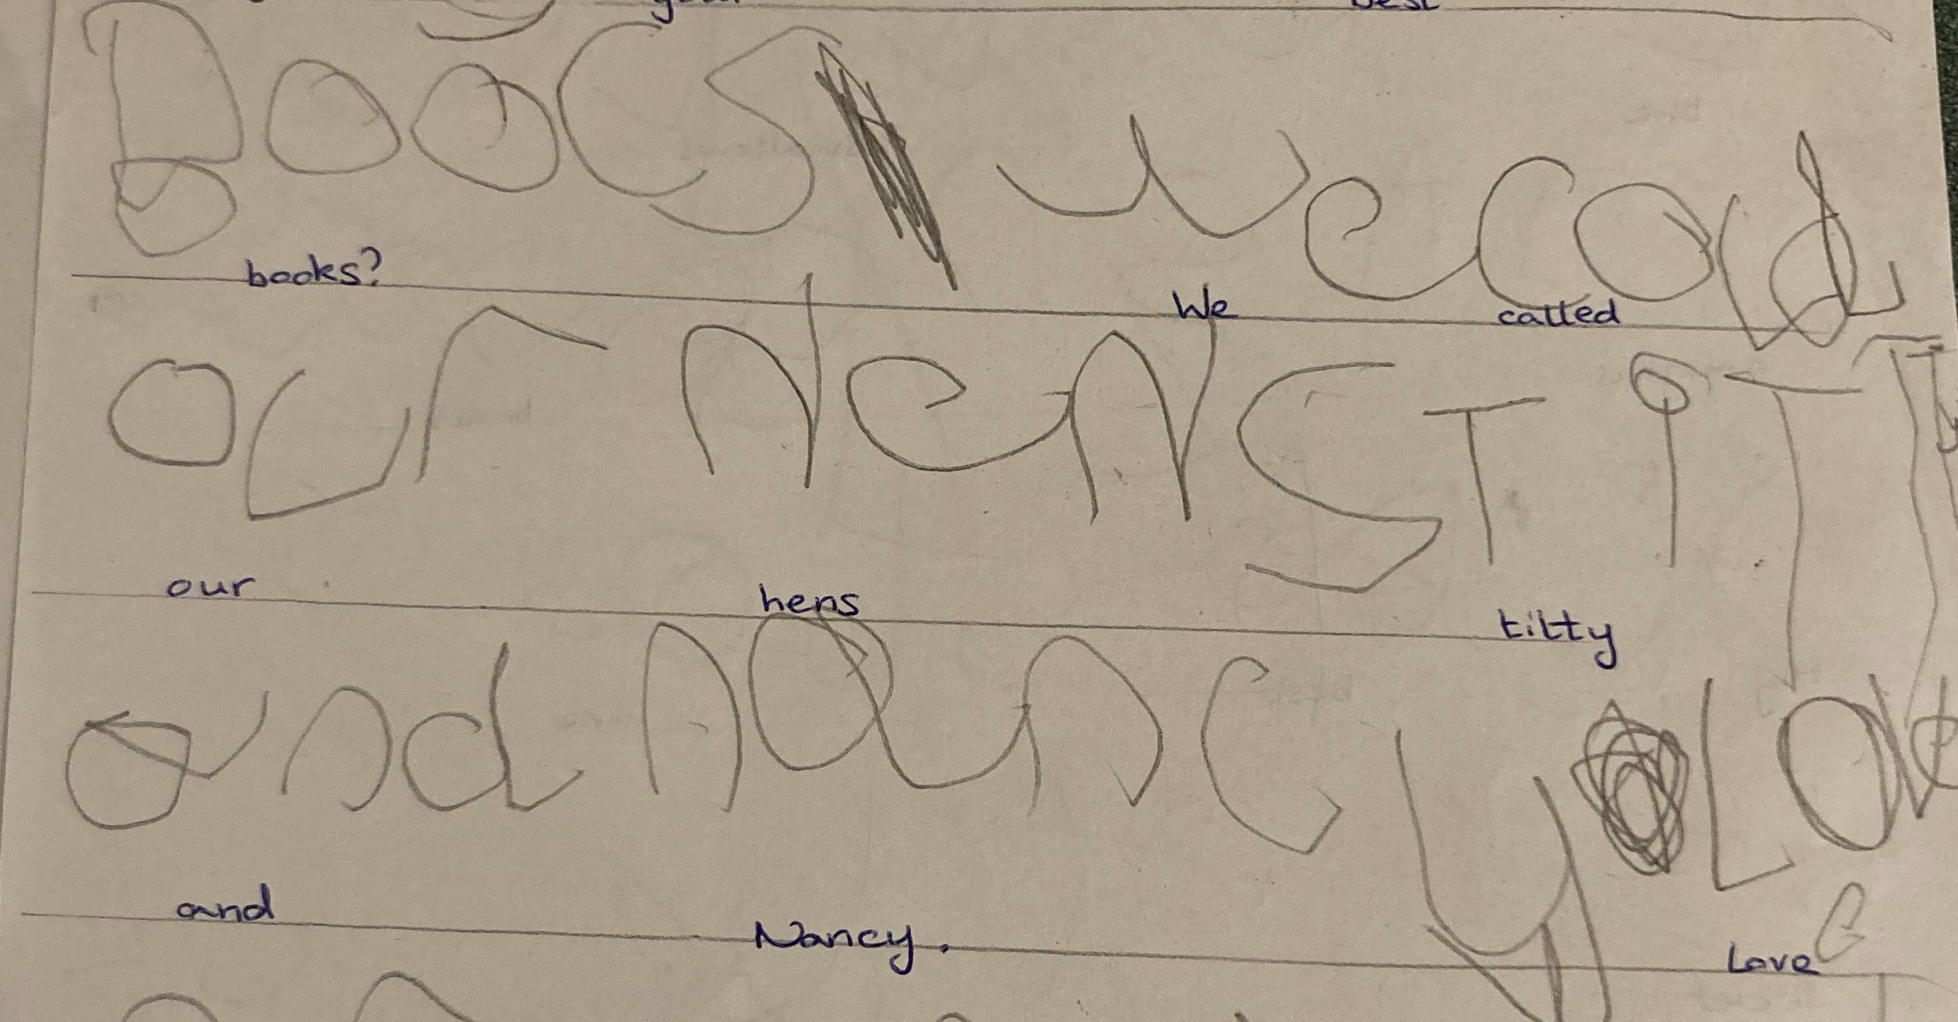 best
BOOCS we cold
books? We called
our nens TiTTy
our hens titty
and nancy Love
and Nancy. Love